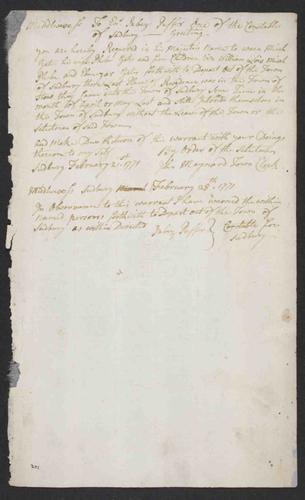 Middlesex ss To Mr Jabez Puffer One of the Constable
of Sudbury — Greeting.
you are hereby Required in his Majestys Name to warn
that his wife and four Children viz William Lois
and forthwith to Depart out of the Town
of Sudbury their Last Place of Residence was in the Town of
Stow they Came into the Town of Sudbury Some Time in the
month of April or May Last and Still Intrude themselves in
the Town of Sudbury without the Leave of the Town or the
Selectmen of said Town
and Make Due Return of this warrant with your Doings
thereon to my Self By Order of the Selectmen
Sudbury February 21st 1771 Maynard Town Clerk
Middlesex ss Sudbury February 28th 1771
In Observance to this warrant I have warned the within
Named persons forthwith to Depart out of the Town of
Sudbury as within Directed
Jabez Puffer Constable for
Sudbury